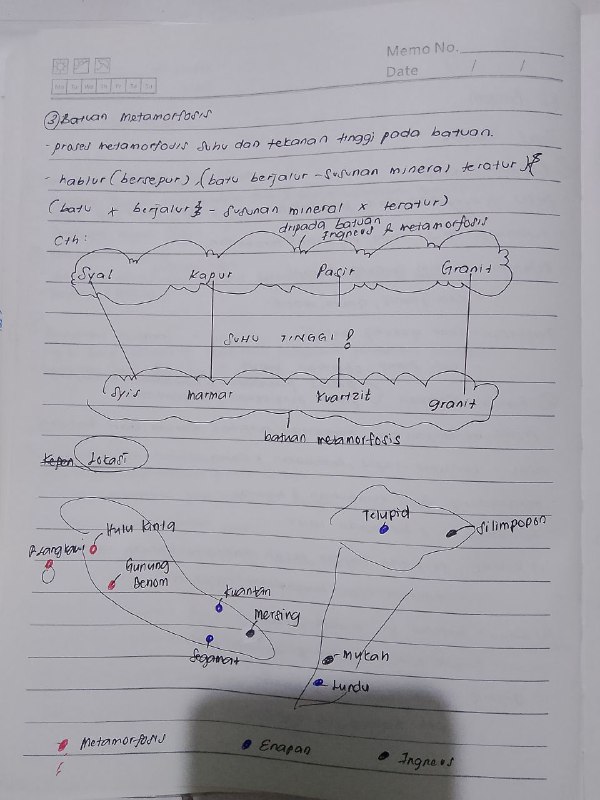 Memo No.
Date / /
Mo Tu We Th Fr Sa Su
③ Batuan metamorfosis
- proses metamorfosis suhu dan tekanan tinggi pada batuan.
- hablur (bersepur), (batu berjalur - susunan mineral teratur)
(batu x berjalur - susunan mineral x teratur)
Cth:
dripada batuan
Ingneus & metamorfosis
Syal Kapur Pasir Granit
SUHU TINGGI !
Syis marmar Kuartzit granit
batuan metamorfosis
Lokasi
Hulu Kinta
P.Langkawi
Gunung
Benom
Kuantan
Mersing
Segamat
Telupid
Silimpopon
Mukah
Lundu
Metamorfosis Enapan Ingneus